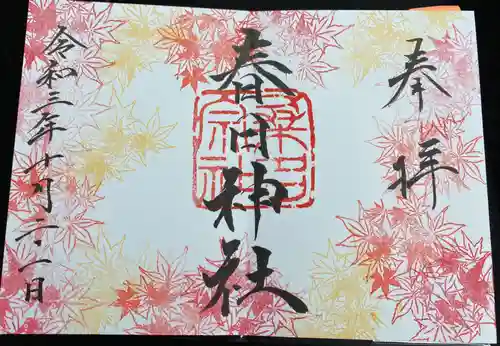 奉拝
春日神社
桑名
宗社
令和三年十月二十一日